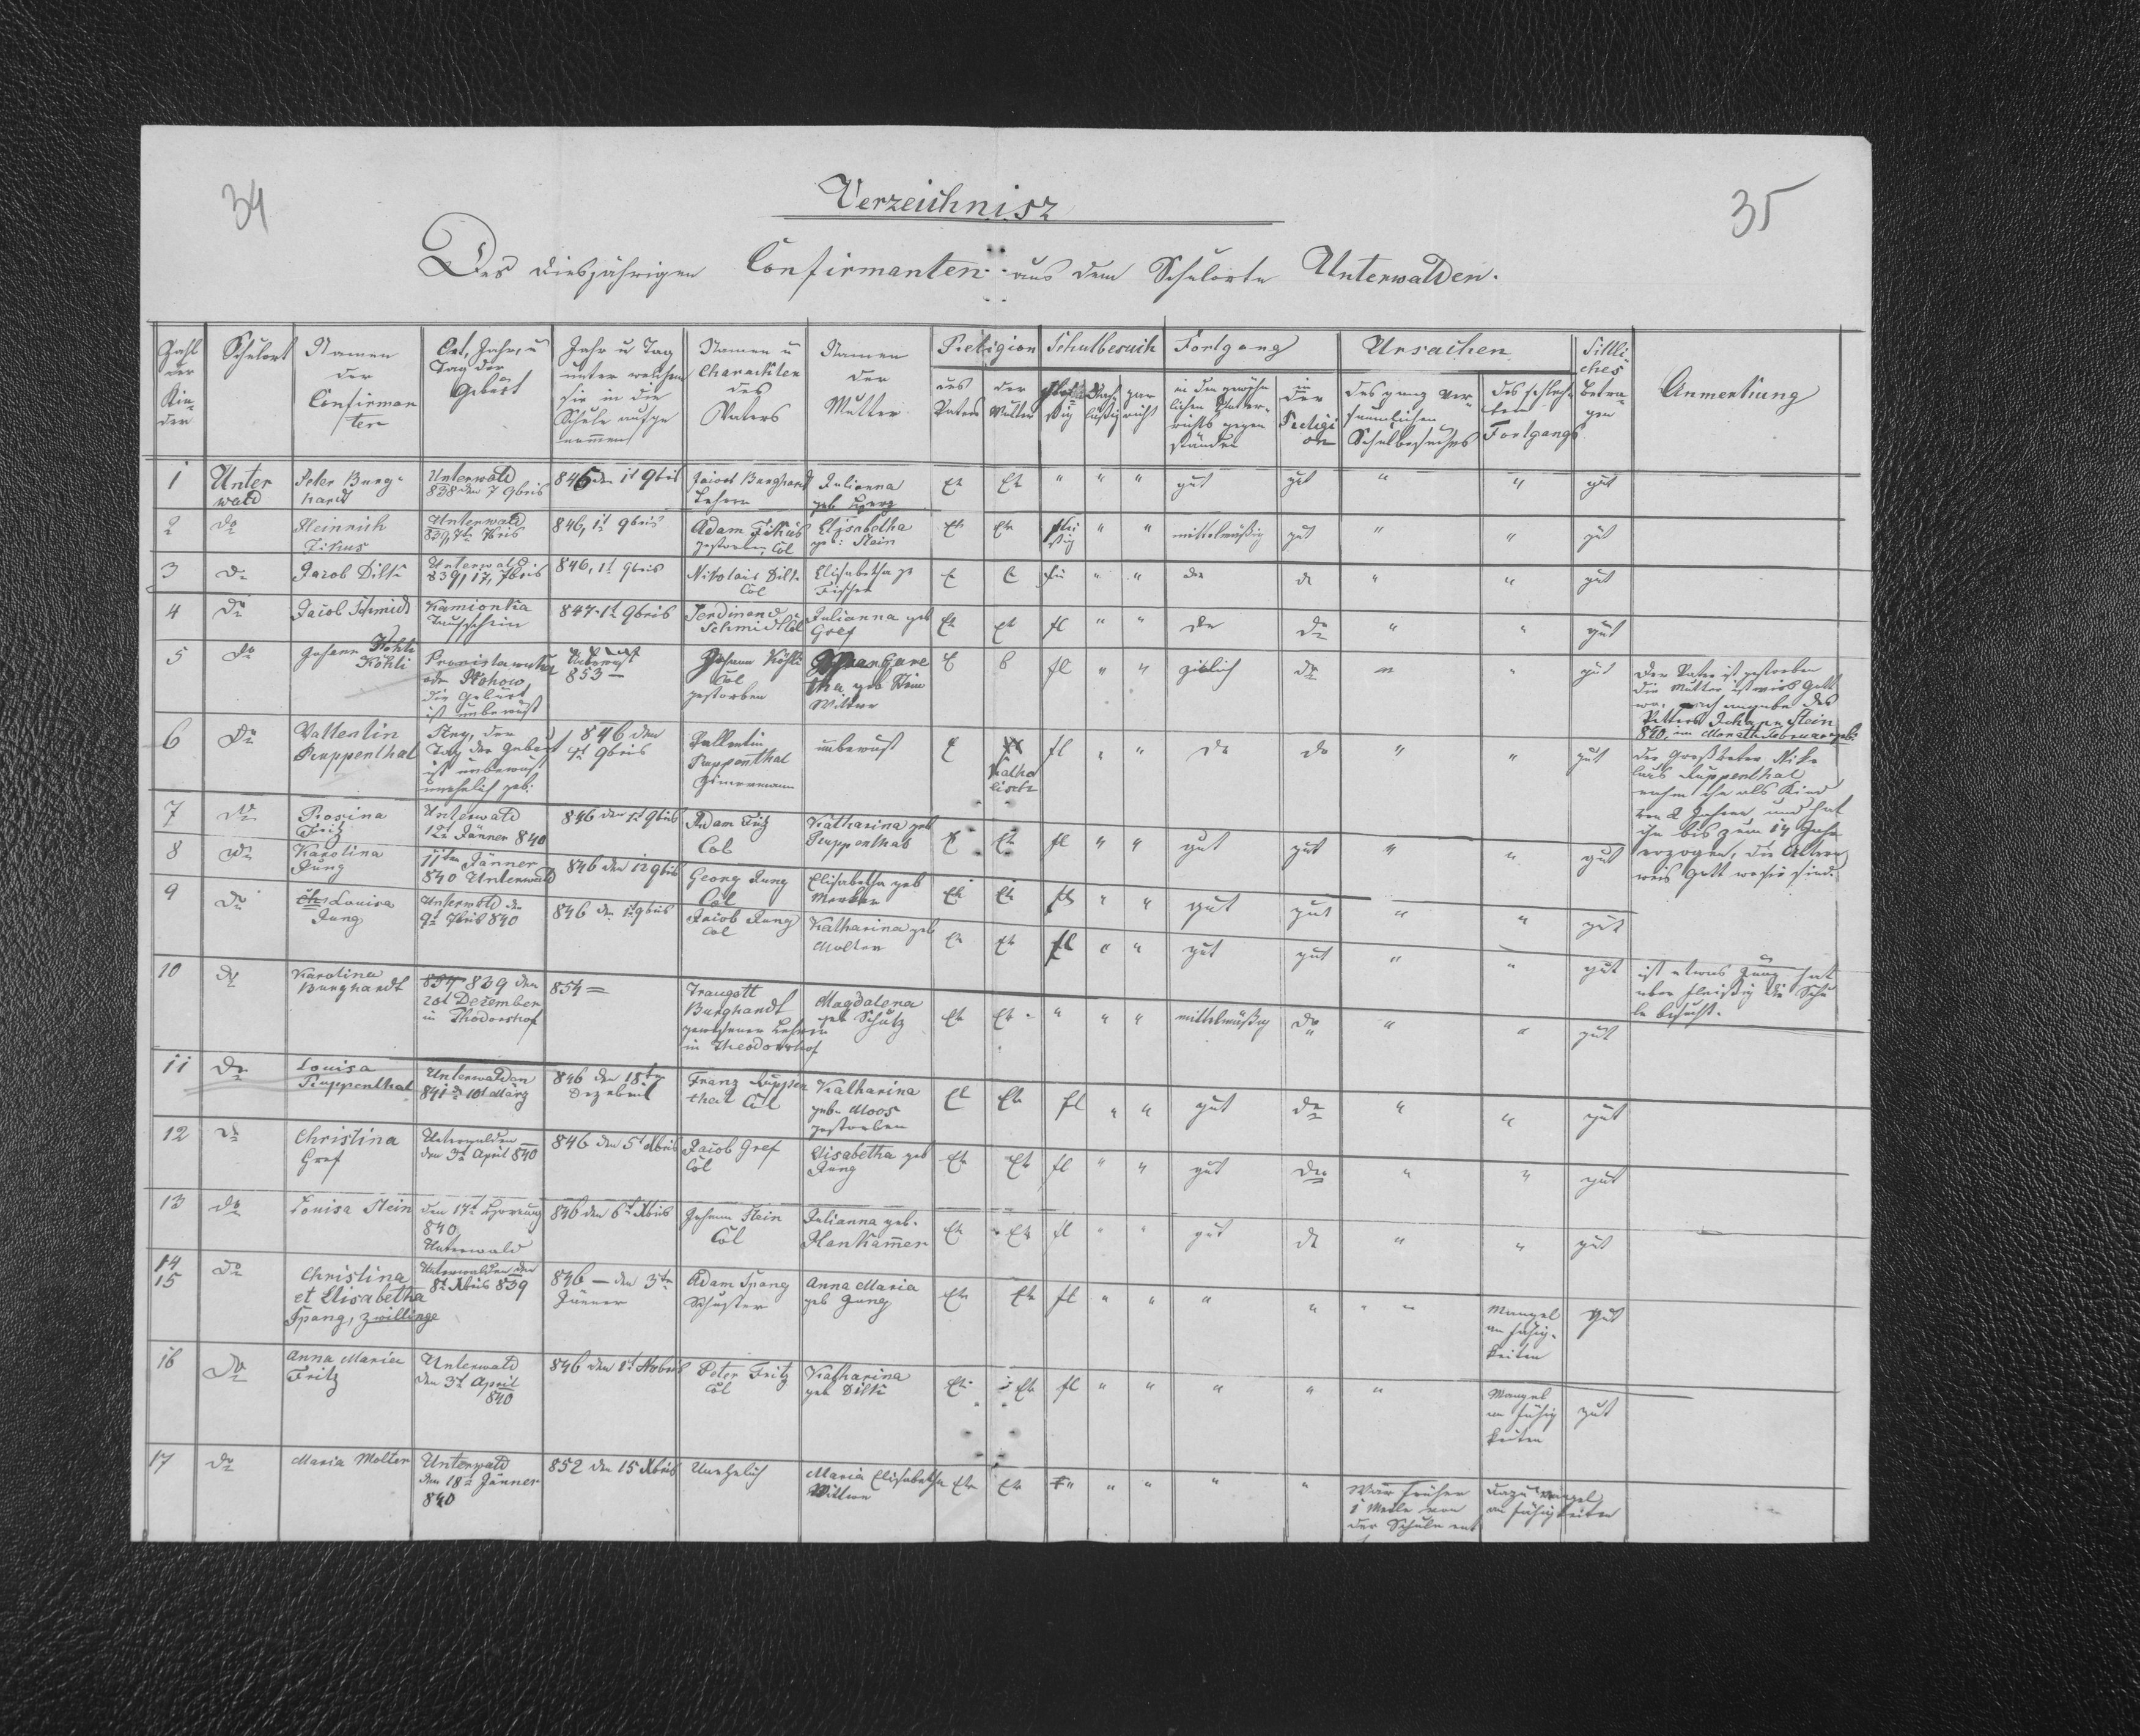 34
35
Verzeichnisz
Des diesjährigen Confirmanten aus dem Schulorte Unterwalden.
Zahl der Kinder
Schulort
Namen der Confirmanten
Ort, Jahr, u Tag der Geburt
Jahr u Tag unter welchem sie in die Schule aufgenommen
Namen u Charackter des Vaters
Namen der Mutter
Religion
des Vaters
der Mutter
Schulbesuch
fleißig
Nachläßig
gar nicht
Fortgang
in den gewöhnlichen Unterrichts gegenständen
in der Religion
Ursachen
des ganz versäumlichen Schulbesuches
des schlechten Fortgangs
Sittliches Betragen
Anmerkung
1 Unterwald Peter Burghardt Unterwald 838 den 7 9bris 846 den 1t 9bris Jacob Burghardt Lehrer Julianna geb Ek Ek " " " gut gut " " gut
2 do Heinrich Zikus Unterwald 839, 7bris 846, 1t 9bris Adam Zikus gestorben Col Elisabetha geb: Stein Ek Ek fleißig " " mittelmäßig gut " " gut
3 do Jacob Dilk Unterwald 839, 17, 7bris 846, 1t 9bris Nikolais Dilk Col Elisabetha ge Fischer E E " " do do " " gut
4 do Jacob Schmidt Kamionka Taufschein 847. 1t 9bris Ferdinand Schmidt Col Julianna geb Gref Ek Ek fl " " do do " " gut
5 do Johann Köhli die Geburt ist unbewust 853 Johann Köhli Col gestorben Margaretha geb Stein Wittwe E E fl " " zimlich do " " gut
Der Vater ist gestorben
die Mutter ist weis Gott
wo, nach angabe des
Vetters Johann Stein
840, im Monath Februar geb:
6 do Vallentin Ruppenthal der Tag der Geburt ist unbewust unehelich geb: 846 den 1t 9bris Vallentin Ruppenthal Zimermann unbewust E Katholisch fl " " do do " " gut
der Großvater Nikolaus Ruppenthal
nahm ihn als Kind
von 2 Jahren und hat
ihn bis zum 14 Jahr
erzogen, die Altern
weis Gott wo sie sind.
7 do Rosina Fritz Unterwald 12t Jänner 840 846 den 1t 9bris Adam Fritz Col Katharina geb Ruppenthal E Ek fl " " gut gut " " gut
8 do Karolina Jung 11ten Jänner 840 Unterwald 846 den 1t 9bris Georg Jung Col Elisabetha geb Ek Ek fl " " gut gut " " gut
9 do Louisa Jung Unterwald den 9t 840 846 den 1t 9bris Jacob Jung Col Katharina geb Molter Ek Ek fl " " gut gut " " gut
ist etwas Jung hat
aber fleißig die Schule besucht.
10 do Karolina Burghardt 839 den 20t Dezember in Theodorshof 854 Traugott Burghardt gewesener Lehrer in Theodorshof Magdalena geb Schütz Ek Ek " " " mittelmäßig do " " gut
11 do Louisa Ruppenthal Unterwalden 841 d 10t März 846 den 18t Dezember Franz Ruppenthal Col Katharina geb. Moos gestorben Ek Ek fl " " gut do " " gut
12 do Christina Gref Unterwalden den 3t April 840 846 den 5t Xbris Jacob Gref Col Elisabetha geb Jung Ek Ek fl " " gut do " " gut
13 do Louisa Stein den 17t Hornung 840 Unterwald 846 den 6t Xbris Johann Stein Col Julianna geb. Mankamer Ek Ek fl " " gut do " " gut
14 15 do Christina et Elisabetha Spang, Zwillinge Unterwalden den 8t Xbris 839 846 – den 3te Jänner Adam Spang Schuster Anna Maria geb Jung Ek Ek fl " " " " " " Mangel an Fähigkeiten gut
16 do Anna Maria Fritz Unterwald den 3t April 840 846 den 1t Nobris Peter Fritz Col Katharina geb Dilk Ek Ek fl " " " " " Mangel an Fähigkeiten gut
17 do Maria Molter Unterwald den 18 Jänner 840 852 den 15 Xbris Unehelich Maria Elisabetha Wittwe Ek Ek " " " " " War früher 1 Meile von der Schule ent dazu Mangel an Fähigkeiten